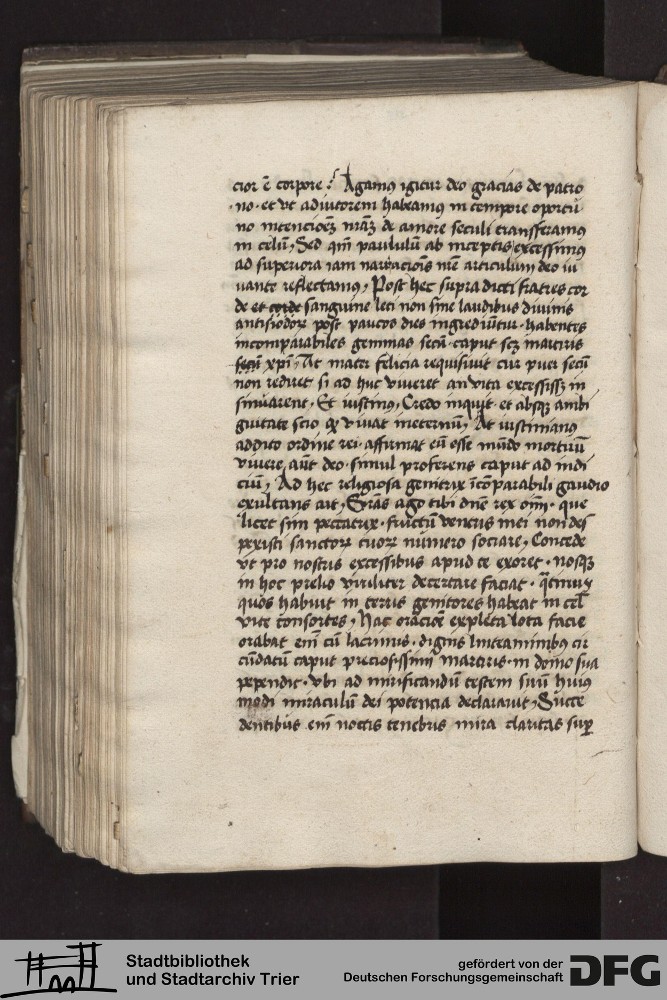 cior ē corpore : Agamꝰ igitur deo gracias de patro
no · et vt adiutorem habeamꝰ in tempore oportū
no intencioēs nr̄as de amore seculi transferamꝰ
in celū, Sed qm̄ paululū ab inceptis excessimꝰ
ad superiora iam narracionis nr̄e articulum deo iu
uante reflectamꝰ, Post hec supra dicti fratres cor
de et corde sanguine leti non sine laudibus diuinis
antisiodorꝝ post paucos dies ingrediūtur · habentes
incomparabiles gemmas secū · caput scꝫ martiris
xpī, At mater felicia requisiuit cur puer secū
non rediret si ad huc viueret an vita excessissꝫ in
sinuarent, Et iustinꝰ, Credo inquit · et absqꝫ ambi
guitate scio qꝫ viuat in eternū, At iustinianꝰ
addito ordine rei · affirmat eū esse mūdo mortuū
viuere aūt deo · simul proferens caput ad indi
ciū, Ad hec religiosa genitrix īcōparabili gaudio
exultans ait, Gr̄as ago tibi dn̄e rex om̄i · que
licet sim peccatrix · fructū ventris mei non des
pexisti sanctorꝝ tuorꝝ numero sociare, Concede
vt pro nostris excessibus apud te exoret · nosqꝫ
in hoc prelio viriliter decertare faciat ·
quos habuit in terris genitores habeat in cel̄
vite consortes, Hac oracioē expleta lota facie
orabat eni͞ cū lacrimis · dignis linteaminibꝰ cir
cūdatū caput preciosissimi martiris · in domo sua
pependit · vbi ad mirificandū testem suū huiꝰ
modi miraculū dei potencia declarauit, Succe
dentibus eni͞ noctis tenebris mira claritas suꝑ
Stadtbibliothek
und Stadtarchiv Trier
gefördert von der
Deutschen Forschungsgemeinschaft
DFG